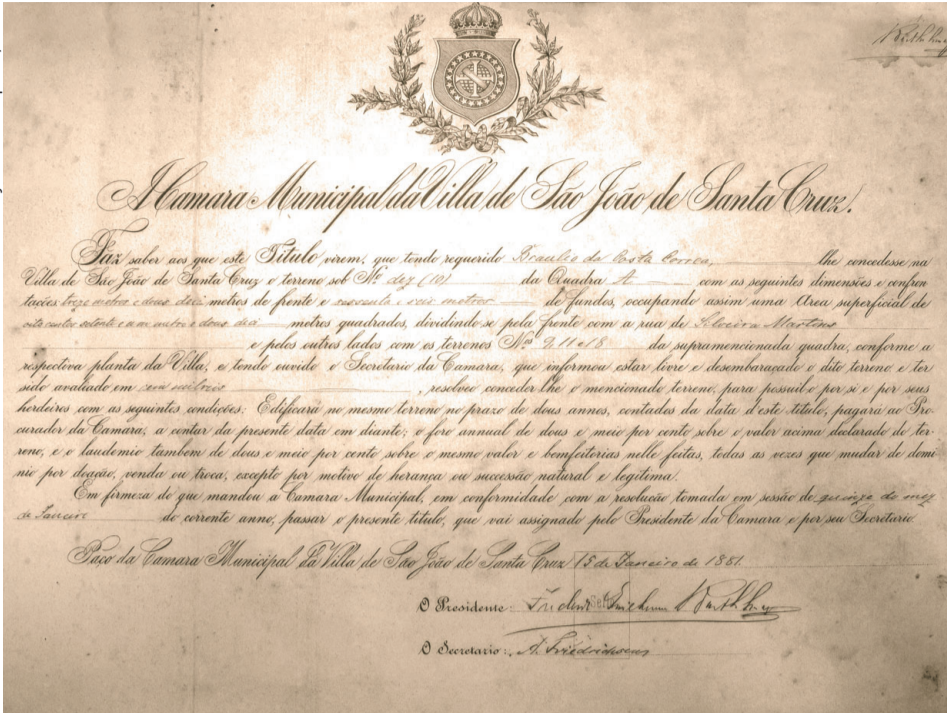 A Camara Municipal da Villa de São João de Santa Cruz.
Faz saber aos que este Titulo virem, que tendo requerido Braulio da Costa Correa, lhe concedesse na
Villa de São João de Santa Cruz o terreno sob Nº dez (10) da Quadra A com as seguintes dimensões e confron
tações treze metros e dous deci metros de frente e sessenta e seis metros de fundos, occupando assim uma Area superficial de
oito centos setenta e um metro e dous deci metros quadrados, dividindo se pela frente com a rua de Silveira Martins
e pelos outros lados com os terrenos Nos 9. 11 e 18 da supramencionada quadra, conforme a
respectiva planta da Villa, e tendo ouvido o Secretario da Camara, que informou estar livre e desembaraçado o dito terreno e ter
sido avaliado em cem milreis, resolveo conceder lhe o mencionado terreno, para possuil-o por si e por seus
herdeiros com as seguintes condições: Edificará no mesmo terreno no prazo de dous annos, contados da data d'este titulo, pagará ao Pro-
curador da Camara, a contar da presente data em diante; o foro annual de dous e meio por cento sobre o valor acima declarado do ter-
reno, e o laudemio tambem de dous e meio por cento sobre o mesmo valor e bemfeitorias nelle feitas, todas as vezes que mudar de domi
nio por doação, venda ou troca, excepto por motivo de herança ou successão natural e legitima.
Em firmeza do que mandou a Camara Municipal, em conformidade com a resolução tomada em sessão de quinze do mez
de Janeiro do corrente anno, passar o presente titulo, que vai assignado pelo Presidente da Camara e por seu Secretario.
Paço da Camara Municipal da Villa de São João de Santa Cruz 15 de Janeiro de 1881.
O Presidente:
O Secretario: A. Friedrichsen